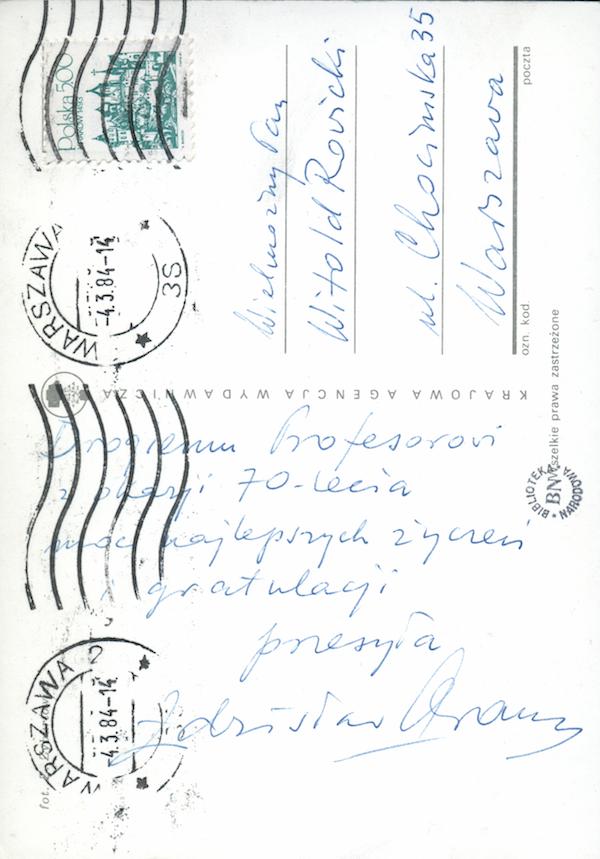 Drogiemu Profesorowi
z okazji 70-lecia
moc najlepszych życzeń
i gratulacji
przesyła
Zdzisław
Wielmożny Pan
Witold Rowicki
ul. Chocimska 35
Warszawa
poczta
ozn. kod.
KRAJOWA AGENCJA WYDAWNICZA
wszelkie prawa zastrzeżone
BIBLIOTEKA
BN
NARODOWA
Polska 5,00
WARSZAWA
-4.3.84-14
3S
WARSZAWA 2
4.3.84-14
fot.